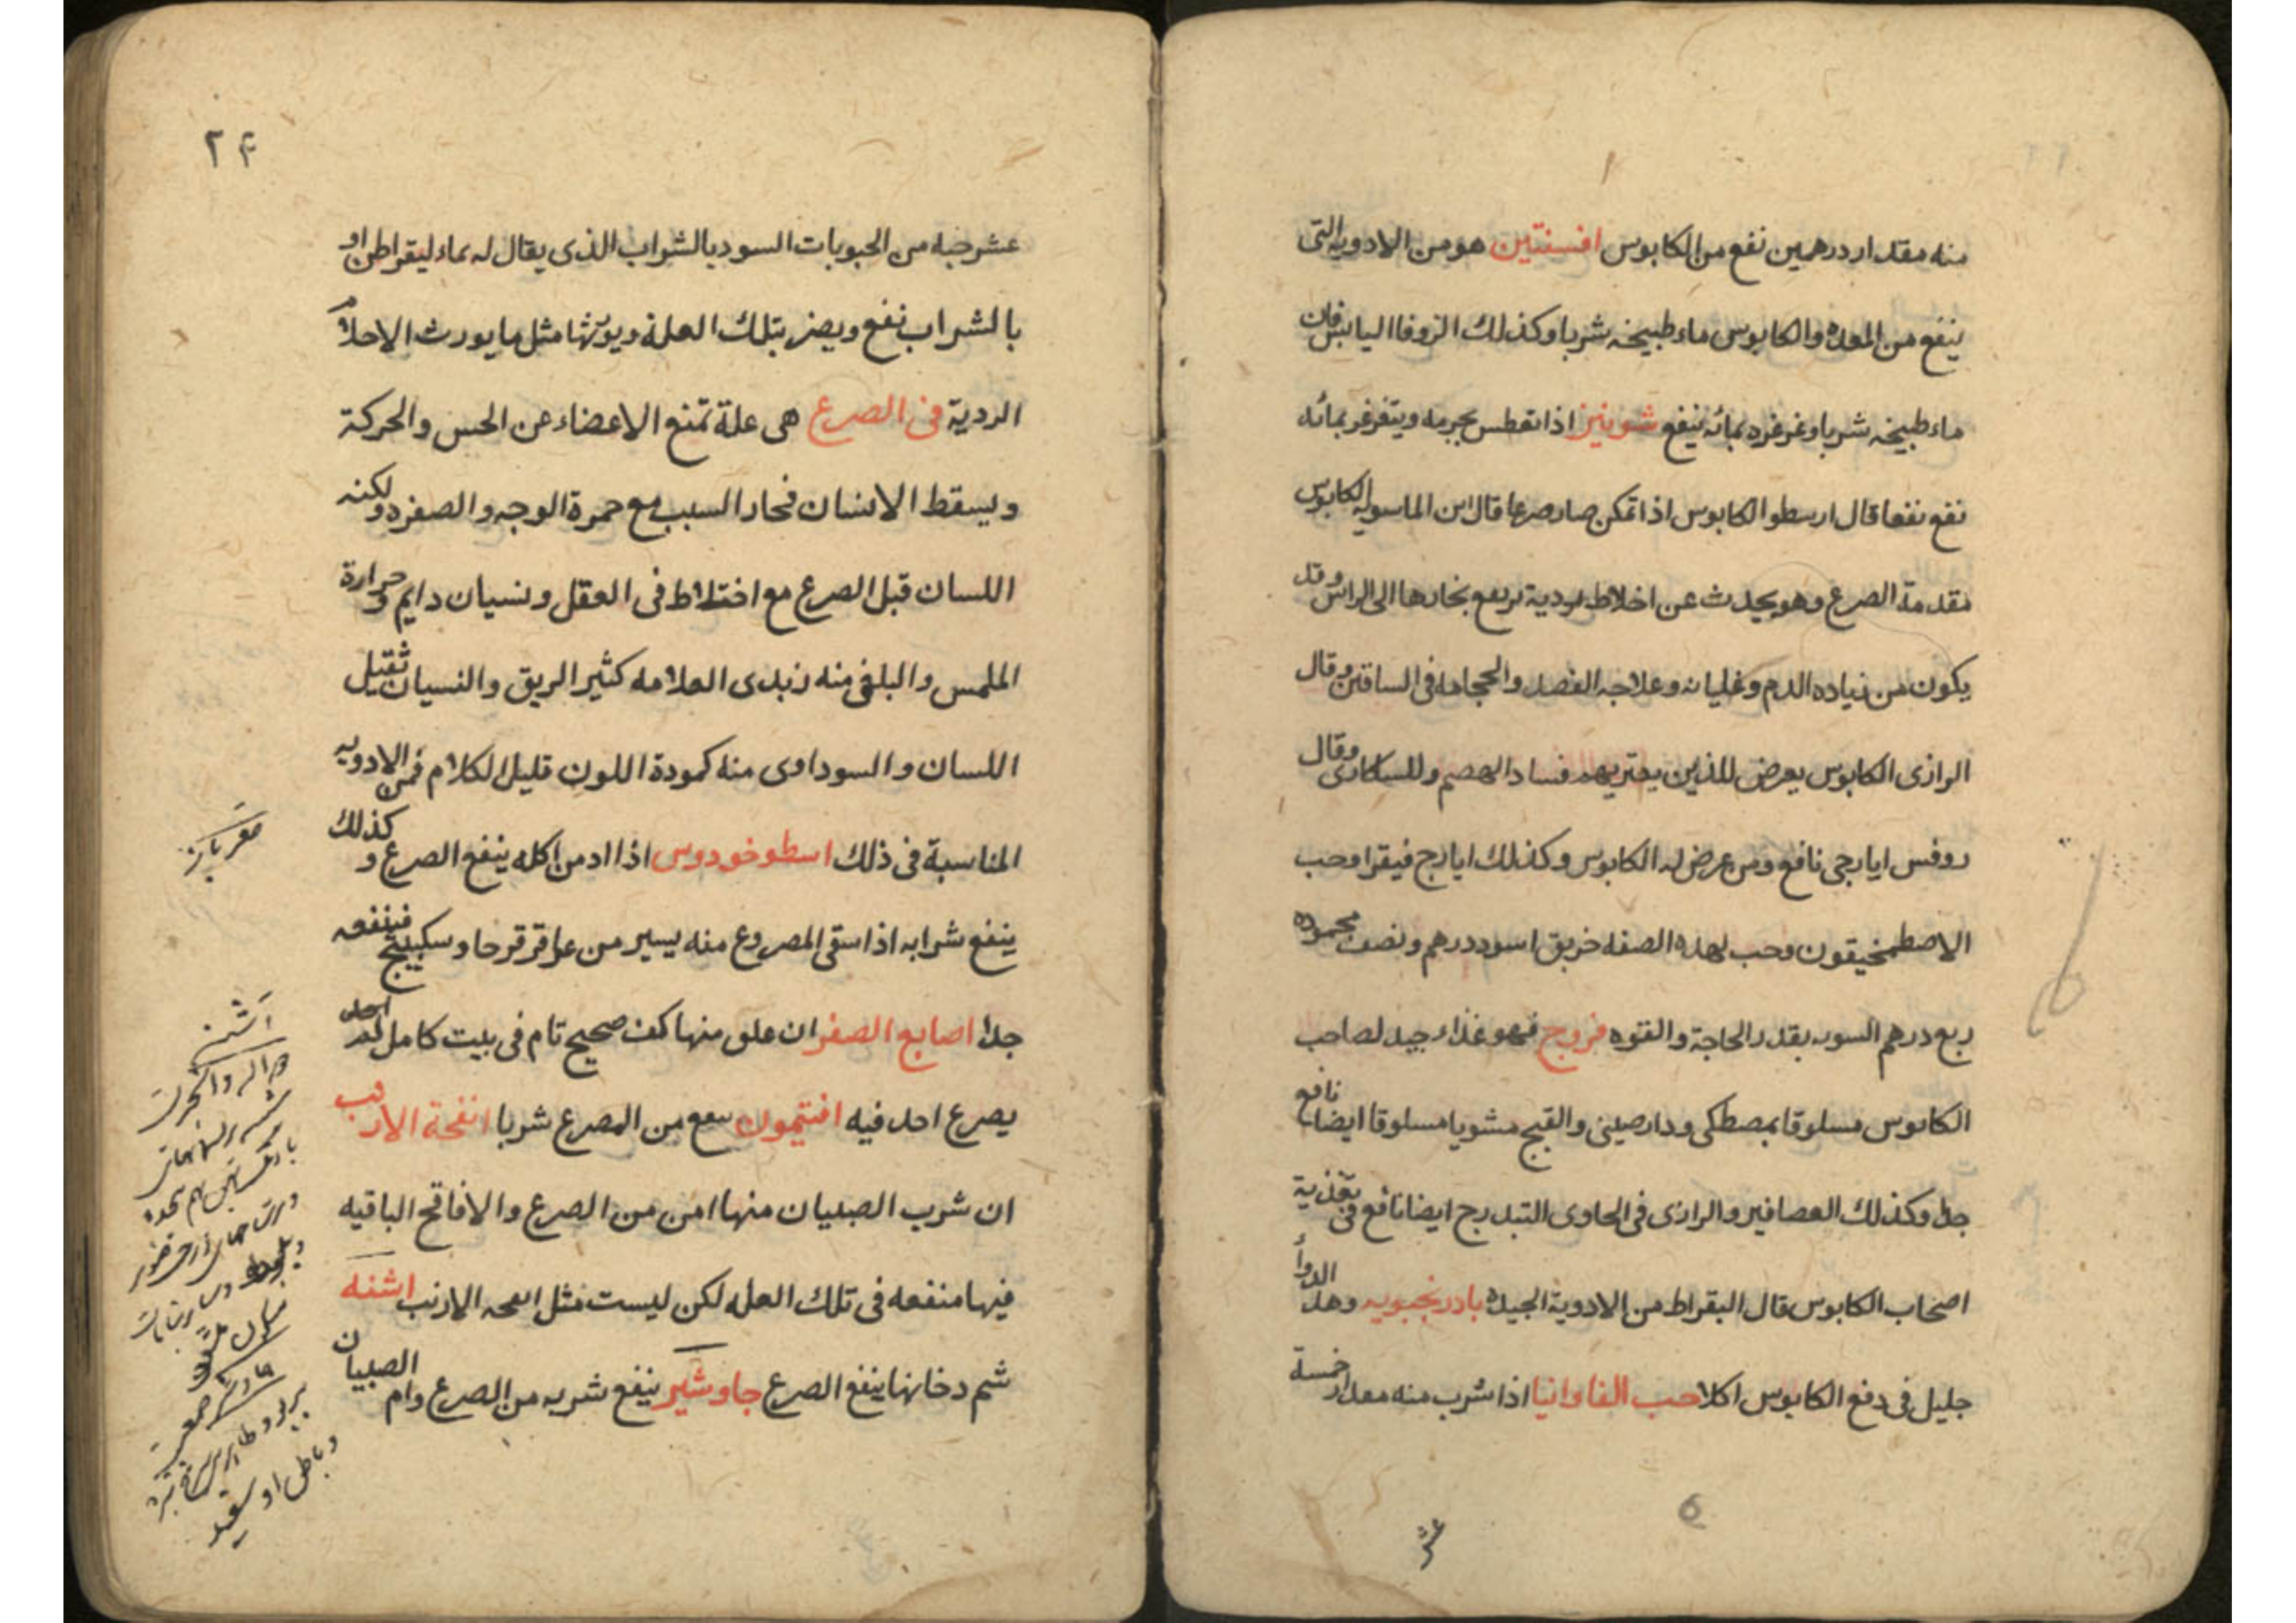 منه مقدار درهمين نفع من الكابوس افسنتين هو من الادوية التى
ينفع من المعده والكابوس ماء طبيخه شربا وكذلك الزوفا اليابس فان
ماء طبيخه شربا وغرغره بمائه ينفع شونيز اذا تعطس بجرمه ويتغرغر بمائه
نفع نفعا قال ارسطو الكابوس اذا تمكن صار صرعا قال ابن الماسويه الكابوس
مقدمة الصرع وهو يحدث عن اخلاط ردية يرتفع بخارها الى الراس وقد
يكون من زياده الدم وغليانه وعلاجه الفصد والحجامه فى الساقين وقال
الرازى الكابوس يعرض للذين يعتريهم فساد الهضم وللسكارى وقال
روفس ايارجى نافع ومن عرض له الكابوس وكذلك ايارج فيقرا وحب
الاصطمخيقون وحب لهذه الصفه خربق اسود درهم ونصف محموده
ربع درهم السوبه بقدر الحاجة والقوه فروج فهو غذاء جيد لصاحب
الكابوس مسلوقا بمصطكى ودارصينى والقبج مشويا مسلوقا ايضا نافع
جدا وكذلك العصافير والرازى فى الحاوى التبدرج ايضا نافع فى تغذية
اصحاب الكابوس قال البقراط من الادوية الجيدة بادرنجبويه وهذا الدوأ
جليل فى دفع الكابوس اكلا حب الفاوانيا اذا شرب منه مقدار خمسة
عشر
٢۴
عشر حبه من الحبوبات السود بالشراب الذى يقال له ماء ليقراطن او
بالشراب نفع ويضر بتلك العلة ويورثها مثل ما يورث الاحلام
الردية فى الصرع هى علة تمنع الاعضاء عن الحس والحركة
ويسقط الانسان فحار السبب مع حمرة الوجه والصفرة ولكنه
اللسان قبل الصرع مع اختلاط فى العقل ونسيان دايم وحرارة
الملمس والبلغمى منه زبدى العلامه كثير الريق والنسيان ثقيل
اللسان والسوداوى منه كمودة اللون قليل الكلام فمن الادويه
المناسبة فى ذلك اسطوخودوس اذا ادمن اكله ينفع الصرع وكذلك
ينفع شرابه اذا سقى المصروع منه يسير من عاقرقرحا وسكبينج فينفعه
جدا اصابع الصفر ان علق منها كف صحيح تام فى بيت كامل لم احد
يصرع احد فيه افتيمون ينفع من المصرع شربا انفحة الارنب
ان شرب الصبيان منها امن من الصرع والافاقح الباقيه
فيها منفعه فى تلك العله لكن ليست مثل انفحه الارنب اشنه
شم دخانها ينفع الصرع جاوشير ينفع شربه من الصرع وام الصبيان
اشنه